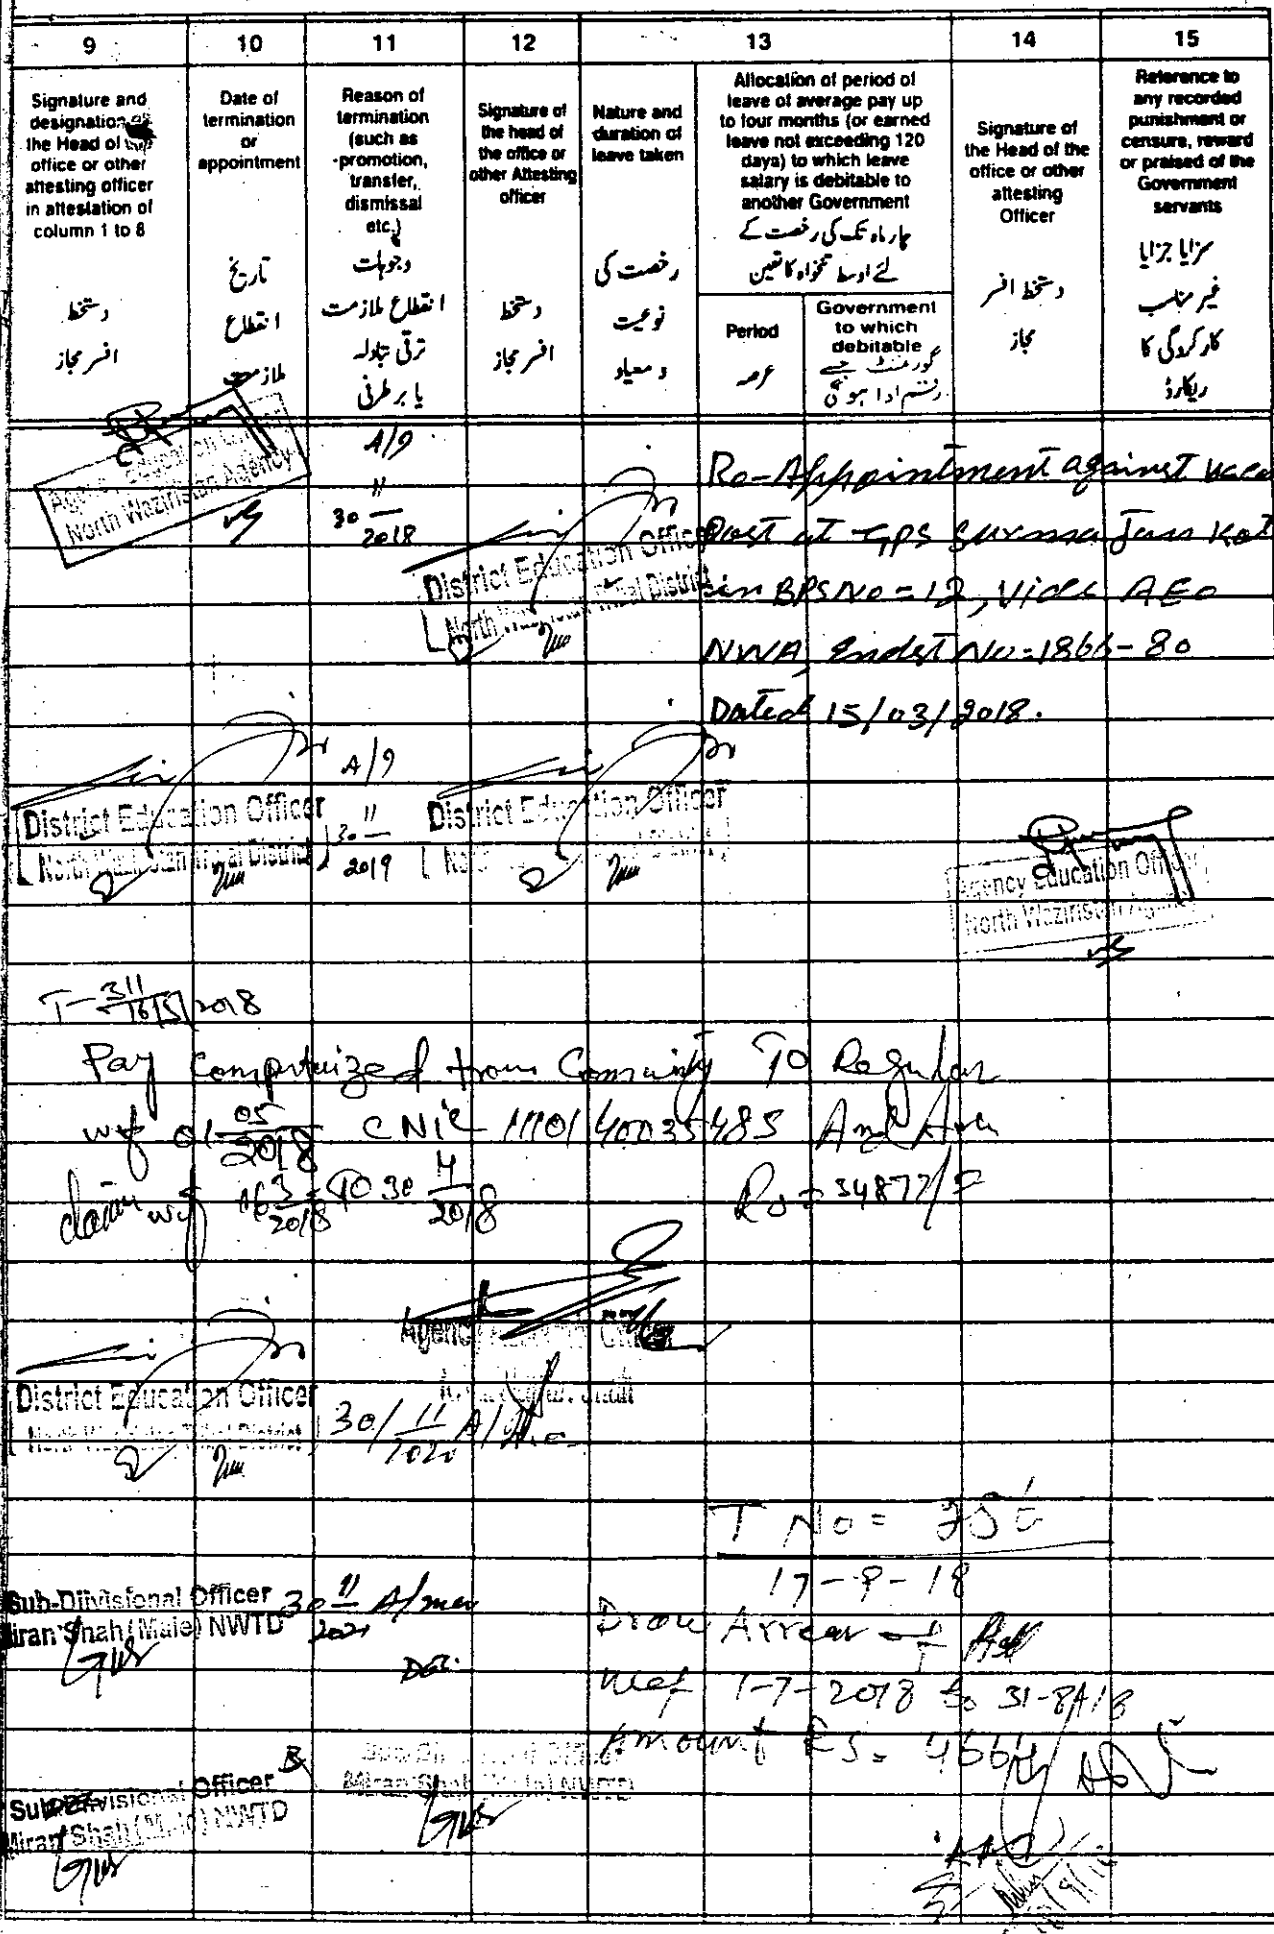 9 10 11 12 13 14 15
Signature and designation of the Head of the office or other attesting officer in attestation of column 1 to 8
دستخط افسر مجاز
Date of termination or appointment
تاریخ انقطاع ملازمت
Reason of termination (such as promotion, transfer, dismissal etc.)
وجوہات انقطاع ملازمت ترقی تبادلہ یا برطرفی
Signature of the head of the office or other Attesting officer
دستخط افسر مجاز
Nature and duration of leave taken
رخصت کی نوعیت و معیاد
Allocation of period of leave of average pay up to four months (or earned leave not exceeding 120 days) to which leave salary is debitable to another Government
چار ماہ تک کی رخصت کے لئے اوسط تنخواہ کا تعین
Period
عرصہ
Government to which debitable
گورنمنٹ جسے رقم ادا ہوگی
Signature of the Head of the office or other attesting Officer
دستخط افسر مجاز
Reference to any recorded punishment or censure, reward or praised of the Government servants
سزا یا جزا یا غیر مناسب کارکردگی کا ریکارڈ
Agency Education Officer
North Waziristan Agency
A/9
30 11 2018
District Education Officer
North Waziristan Tribal District
Re-Appointment against
Post at GPS Surma Jan Kot
in BPS No = 12, Vide AEO
NWA, Endst No = 1866-80
Dated 15/03/2018.
District Education Officer
North Waziristan Tribal District
A/9
30 11 2019
District Education Officer
Agency Education Officer
North Waziristan Agency
T-311 16/5/2018
Pay Comptuized from Comunity To Regular
wef 01 05 2018 CNIC 1110140035485 And
claim wef 3 2018 To 30 4 2018 Rs = 34877/=
Agency
District Education Officer
North Waziristan Tribal District
30/11 2020
T No =
17-9-18
Sub-Diivisional Officer
Miran Shah (Male) NWTD
30 11 2021
Draw Arrear
wef 1-7-2018 to 31-8-18
Amount Rs =
Sub-Divisional Officer
Miran Shah (Male) NWTD
Sub-Divisional Officer
Miran Shah (Male) NWTD